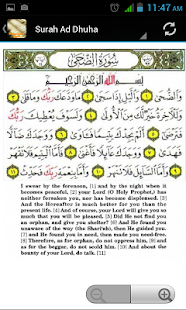 11:47 AM
Surah Ad Dhuha
سُورَةُ الضُّحَى
بِسْمِ اللَّهِ الرَّحْمَٰنِ الرَّحِيمِ
وَالضُّحَىٰ ١ وَاللَّيْلِ إِذَا سَجَىٰ ٢ مَا وَدَّعَكَ رَبُّكَ وَمَا قَلَىٰ
٣ وَلَلْآخِرَةُ خَيْرٌ لَكَ مِنَ الْأُولَىٰ ٤ وَلَسَوْفَ يُعْطِيكَ رَبُّكَ
فَتَرْضَىٰ ٥ أَلَمْ يَجِدْكَ يَتِيمًا فَآوَىٰ ٦ وَوَجَدَكَ ضَالًّا
فَهَدَىٰ ٧ وَوَجَدَكَ عَائِلًا فَأَغْنَىٰ ٨ فَأَمَّا الْيَتِيمَ فَلَا تَقْهَرْ
٩ وَأَمَّا السَّائِلَ فَلَا تَنْهَرْ ١٠ وَأَمَّا بِنِعْمَةِ رَبِّكَ فَحَدِّثْ ١١
I swear by the forenoon, [1] and by the night when it
becomes peaceful, [2] your Lord (O Prophet,) has
neither forsaken you, nor has become displeased. [3]
And the Hereafter is much better for you than the
present life. [4] And of course, your Lord will give you so
much that you will be pleased. [5] Did He not find you
an orphan, and give you shelter? [6] And He found you
unaware of the way (the Shari'ah), then He guided you.
[7] And He found you in need, then made you need-free.
[8] Therefore, as for orphan, do not oppress him, [9] and
as for the beggar, do not scold him. [10] And about the
bounty of your Lord, do talk. [11]